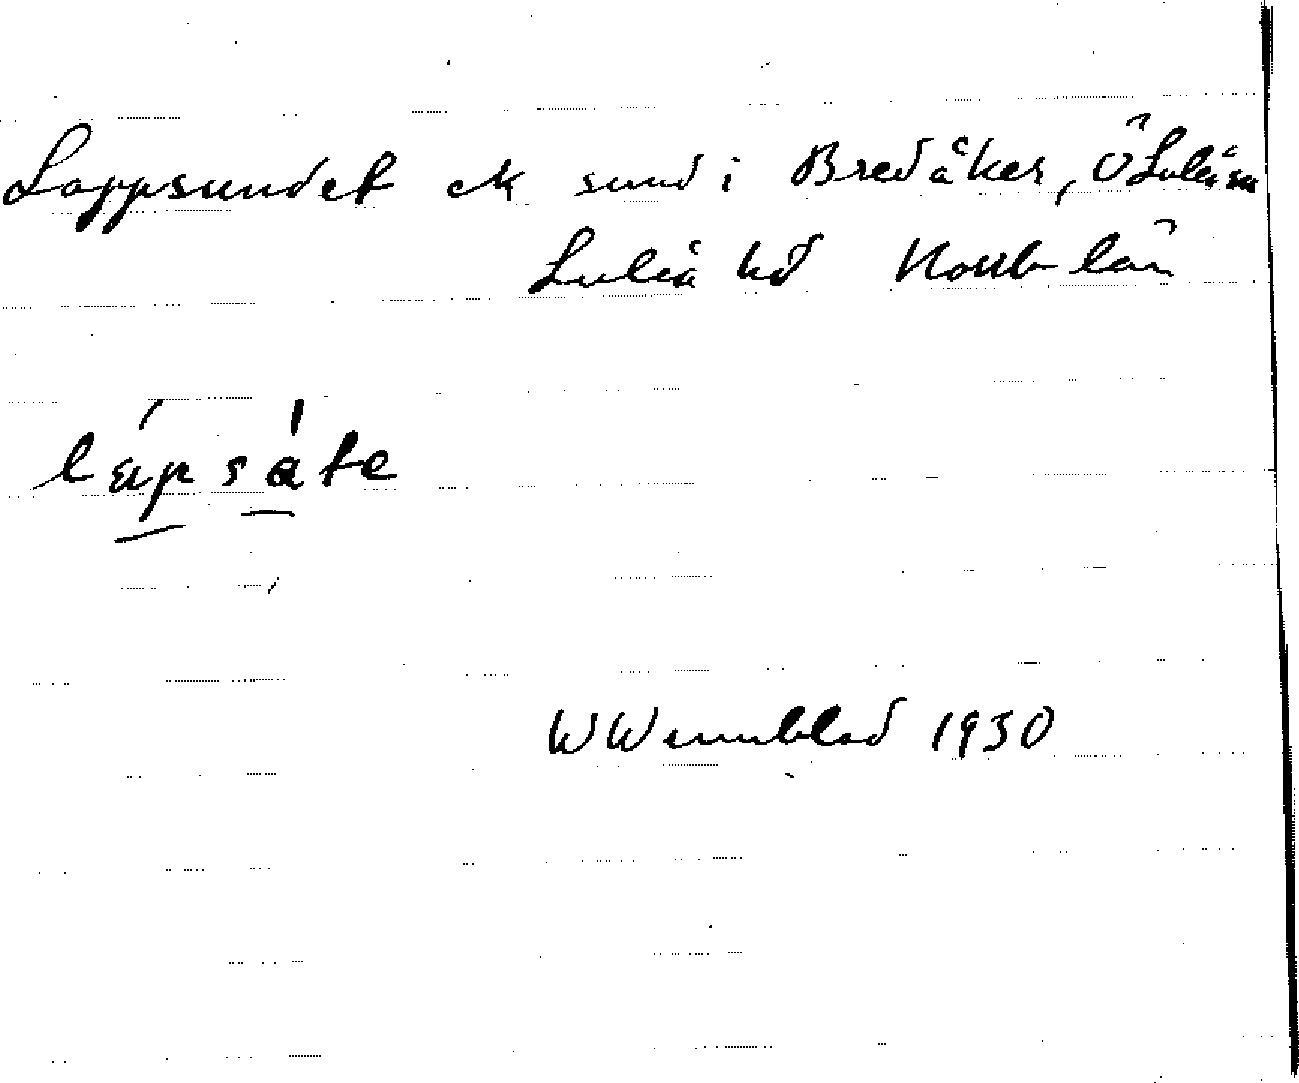 Lappsundet ett sund i Bredåker, Ö Luleå sn
Luleå hd Norrb län
W Wennblad 1930